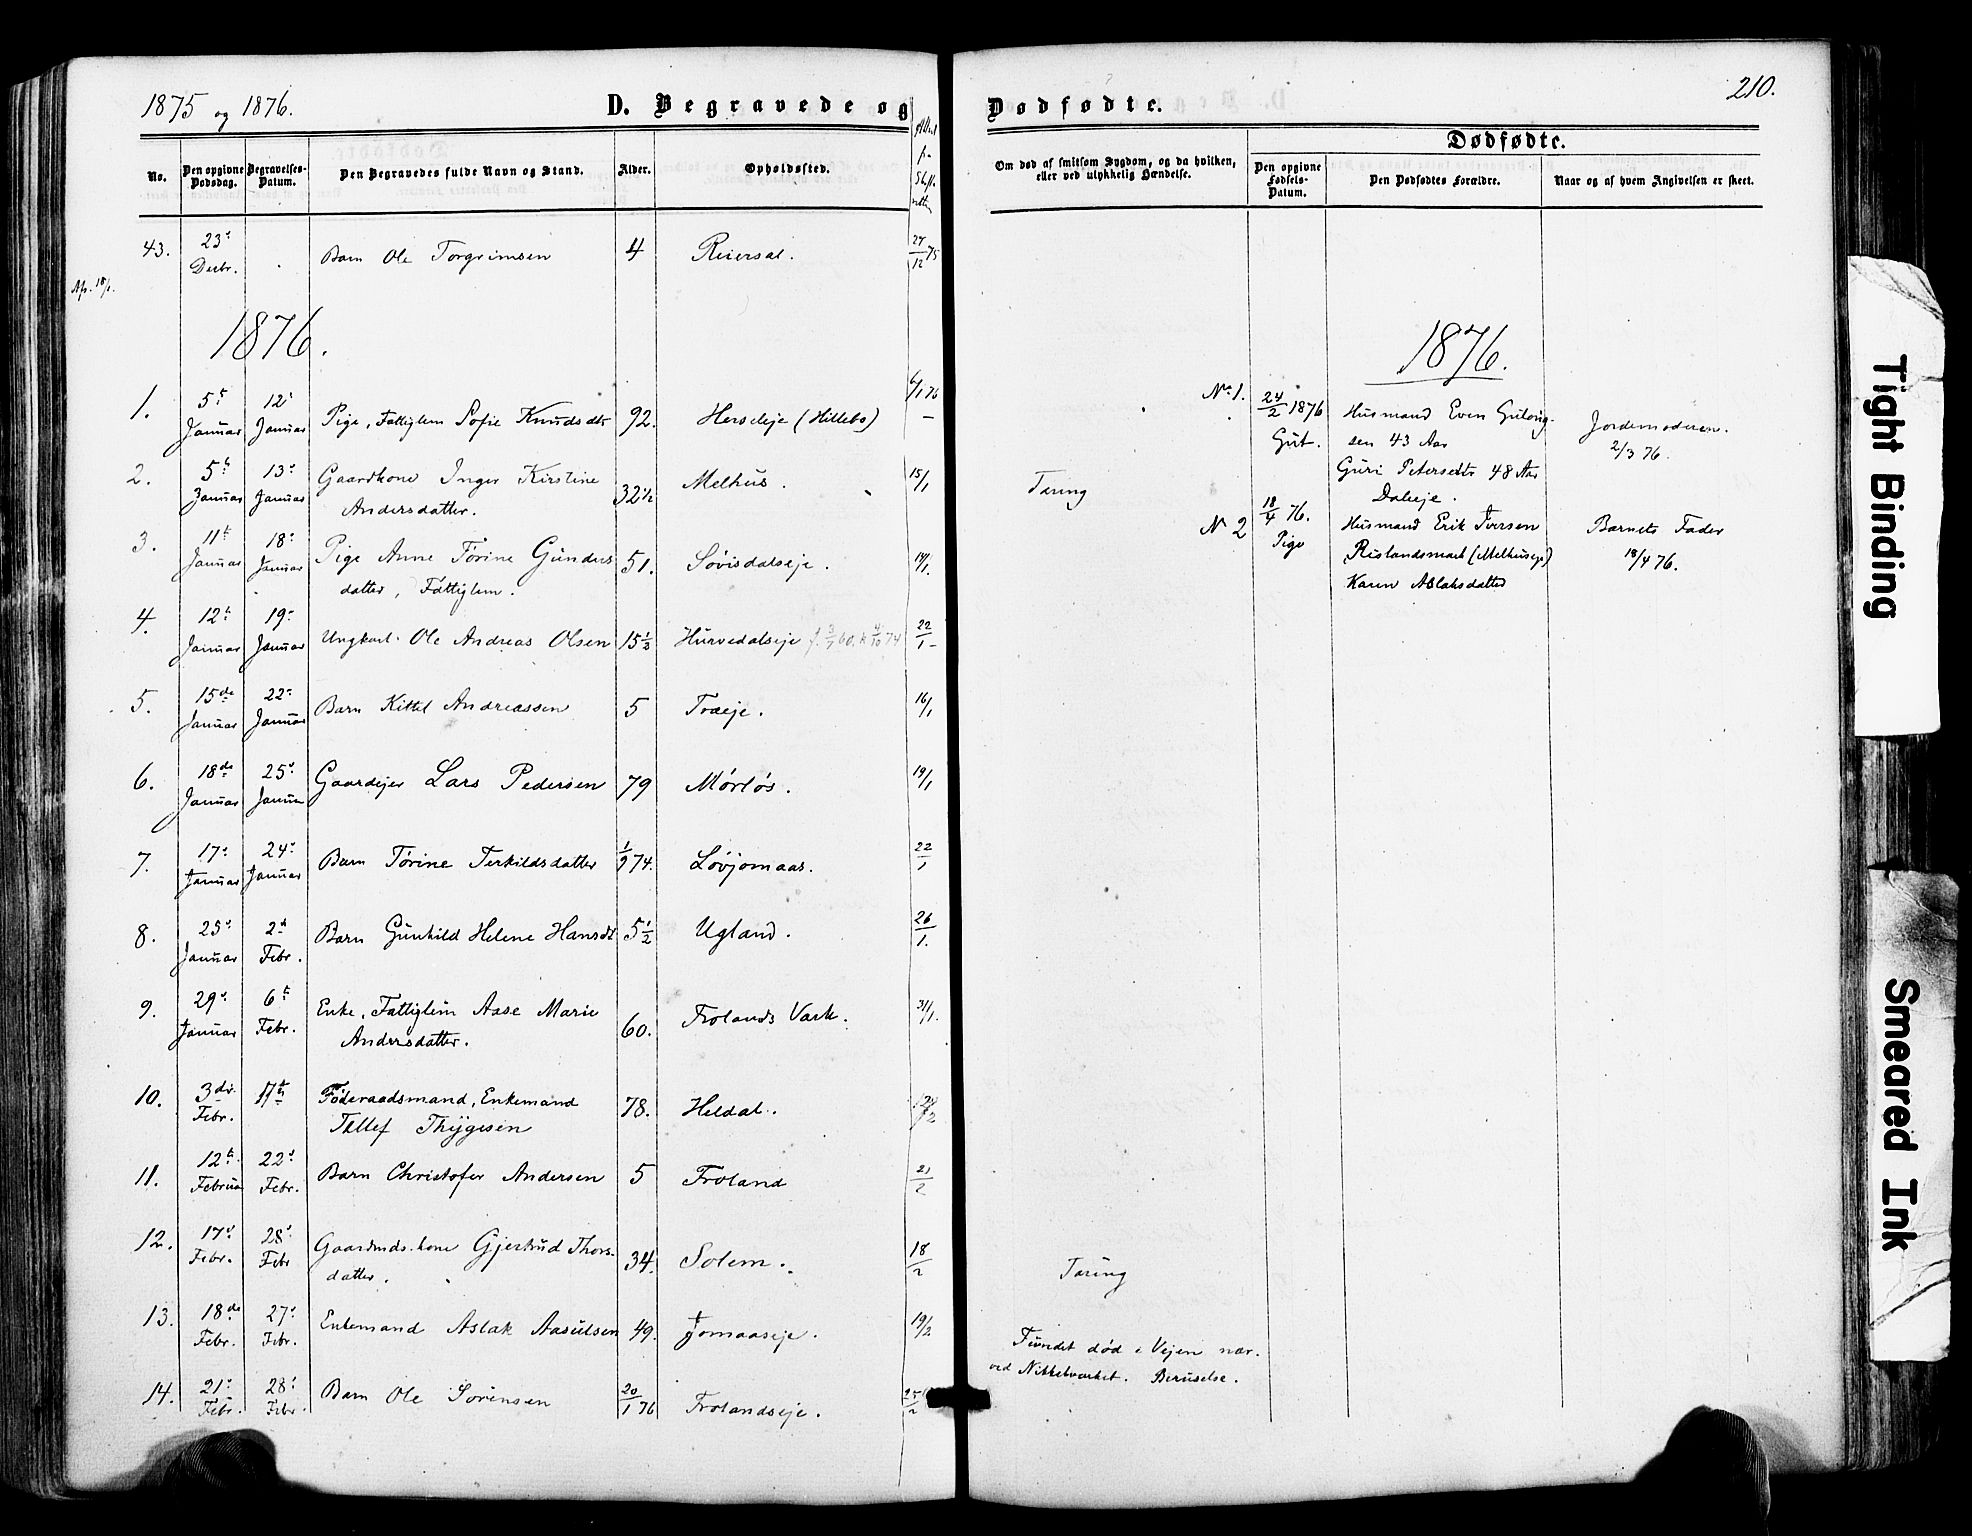 1875 og 1876.
D. Begravede og Dødfødte.
210.
No.
Den opgivne Dødsdag.
Begravelses-Datum.
Den Begravedes fulde Navn og Stand.
Alder.
Opholdssted.
Om død af smitsom Sygdom, og da hvilken,
eller ved ulykkelig Hændelse.
Dødfødte.
Den opgivne Fødsels-Datum.
Den Dødfødtes Forældre.
Naar og af hvem Angivelsen er skeet.
43. 23d Decbr. Barn Ole Torgrimsen 4 Reiersøl. 27/12 75
1876.
1. 5t Januar 12t Januar Pige, Fattiglem Sofie Knudsdtr 92. Herseleje (Hillebo) 6/1 76
2. 5t Januar 13d Januar Gaardkone Inger Kirstine
Andersdatter. 32½ Melhus. 15/1 Tæring
3. 11t Januar 18d Januar Pige Anne Tørine Gunders
datter, Fattiglem. 51. Søvisdalseje. 14/1.
4. 12t Januar 19d Januar Ungkarl Ole Andreas Olsen 15½ Hurvedalseje f. 3/7 60. k 4/10 74 22/1
5. 15de Januar 22d Januar Barn Kittel Andreassen 5 Træeje. 16/1
6. 18de Januar 25d Januar Gaardejer Lars Pedersen 79 Mørløs. 19/1
7. 17d Januar 24d Januar Barn Tørine Terkildsdatter 1/9 74. Løvjomaas. 22/1
8. 25d Januar 2d Febr. Barn Gunhild Helene Hansdt 5½ Ugland. 26/1.
9. 29d Januar 6t Febr. Enke, Fattiglem Aase Marie
Andersdatter. 60. Frolands Værk. 31/1.
10. 3die Febr. Føderaadsmand, Enkemand
Tellef Thygesen 78. Heldal.
11. 12t Februar 22d Febr. Barn Christofer Andersen 5 Froland 21/2
12. 17d Febr. 28d Febr Gaardmds.kone Gjertrud Thors-
datter. 34. Solem. 18/2 Tæring
13. 18de Febr. 27d Febr. Enkemand Aslak Aasulsen 49. Jomaaseje. 19/2 Fundet død i Vejen nær
ved Nikkelværket. Beruselse.
14. 21d Febr. 28d Febr. Barn Ole Sørensen 20/1 76 Frolandseje. 25/2
1876.
No 1. 24/2 1876 Gut. Husmand Even Gulong-
sen 43 Aar
Guri Petersdtr 48 Aar
Daleeje.
Jordemoderen.
2/3 76.
No 2 18/4 76. Pige Husmand Erik Iversen
Rislandsmark (Melhuseje)
Karen Aslaksdatter
Barnets Fader
18/4 76.
Tight Binding
Smeared Ink